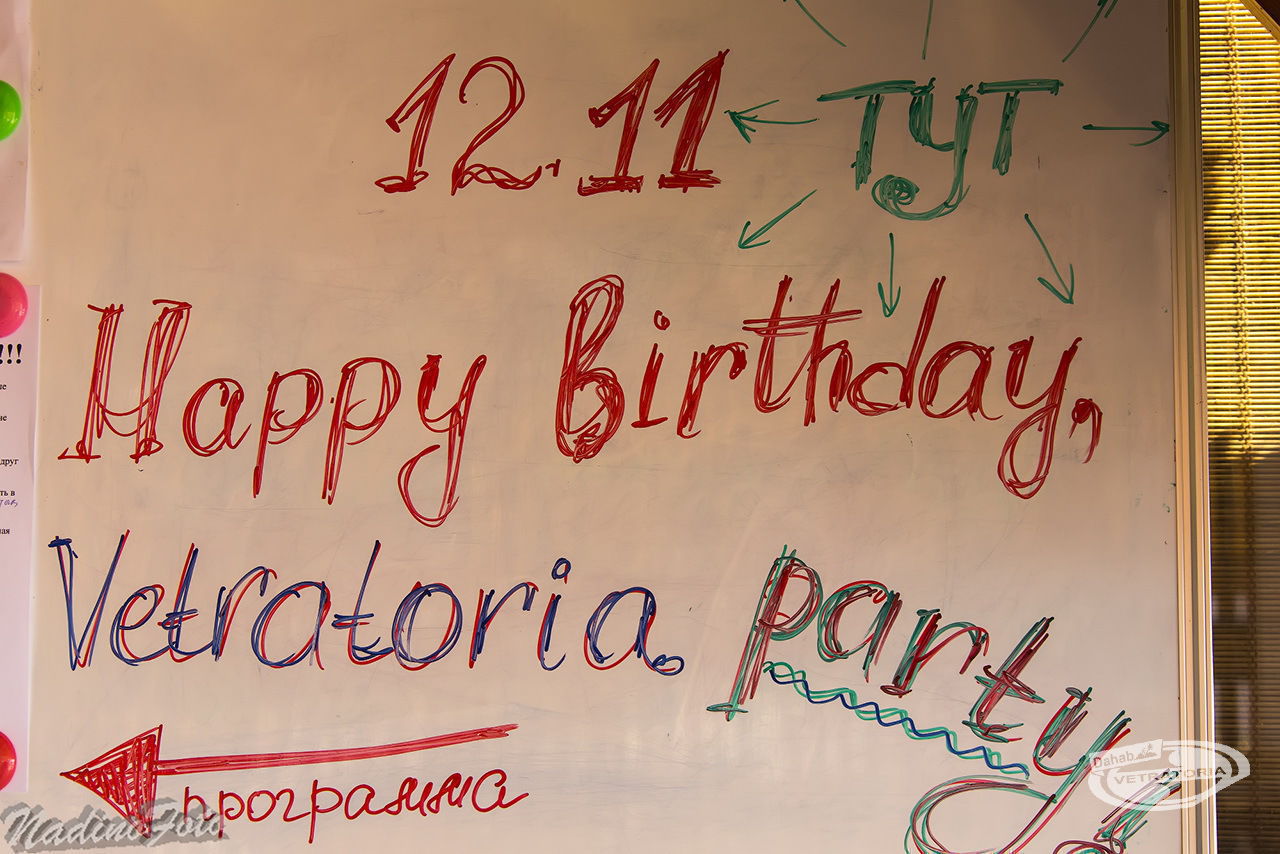 12.11 тут
Happy Birthday,
Vetratoria. party!
программа
!!!
друг
ть в
ная
Nadini Foto
Dahab
VETRATORIA